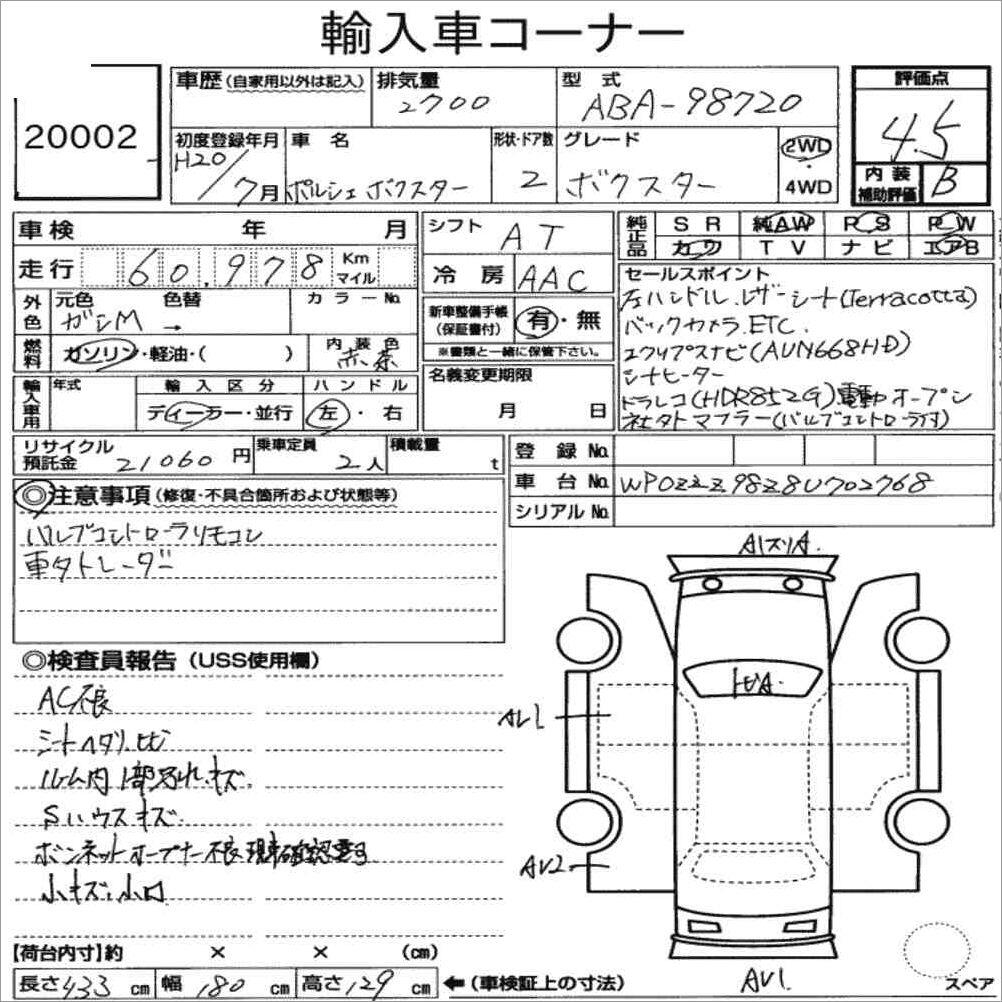 輸入車コーナー
20002
車歴(自家用以外は記入)
排気量
2700
型 式
ABA-98720
評価点
4.5
初度登録年月
H20/7月
車 名
ポルシェ ボクスター
形状・ドア数
2
グレード
ボクスター
2WD
・
4WD
内 装
補助評価
B
車検 年 月
シフト
AT
純正品
SR 純AW PS PW
カワ TV ナビ エアB
走行 60,978 Km マイル
冷 房
AAC
セールスポイント
左ハンドル.レザーシート(Terracotta)
バックカメラ.ETC.
エクリプスナビ(AUN668HD)
シートヒーター
ドラレコ(HDR852G)電動オープン
社外マフラー(バルブコントローラ付)
外色
元色 色替
ガンM →
カラーNo.
新車整備手帳
(保証書付)
有・無
※書類と一緒に保管下さい。
燃料
ガソリン・軽油・( )
内 装 色
赤茶
輸入車用
年式
輸 入 区 分
ディーラー・並行
ハ ン ド ル
左・右
名義変更期限
月 日
リサイクル
預託金
21060円
乗車定員
2人
積載量
t
登 録 No.
車 台 No.
WP0ZZZ98Z8U702768
シリアル No.
◎注意事項(修復・不具合箇所および状態等)
バルブコントローラリモコン
車外トレーダー
◎検査員報告(USS使用欄)
AC不良
シートヘタリ.ヒビ
ルーム内1部汚れ.キズ
Sハウスキズ.
ボンネットオープナー不良 現車確認要す
小キズ.小凹
A1ズリA.
トビA
AU1
AU2
AV1.
スペア
【荷台内寸】約 × × (cm)
長さ433cm 幅180cm 高さ129cm ←(車検証上の寸法)